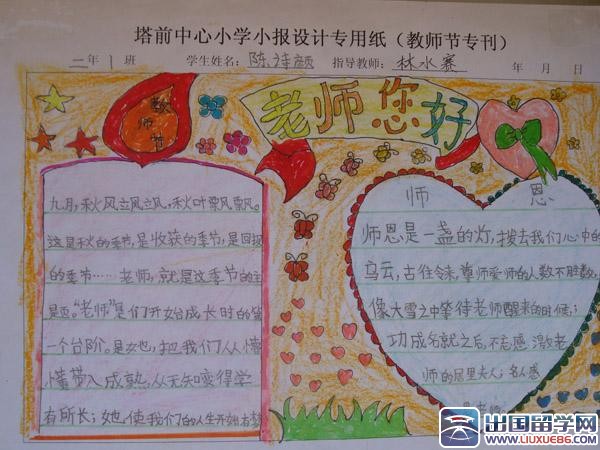 塔前中心小学小报设计专用纸（教师节专刊）
二年1班 学生姓名：陈诗颜 指导教师：林水赛 年 月 日
教师节
老师您好
九月，秋风立风立风，秋叶飘风飘风。
这是秋的季节，是收获的季节，是回报
的季节……老师，就是这季节的主
是页。"老师"是们开始成长时的第
一个台阶。是女也，把我们从从懵
懂带入成熟，从无知变得学
有所长；她使我们的人生开始有
师恩
师恩是一盏的灯，拨去我们心中的
乌云，古往今来，尊师爱师的人数不胜数，
像大雪之中等待老师醒来的时候，；
功成名就之后，不忘感激老
师的居里夫人；名人感
出国留学网
www.liuxue86.com